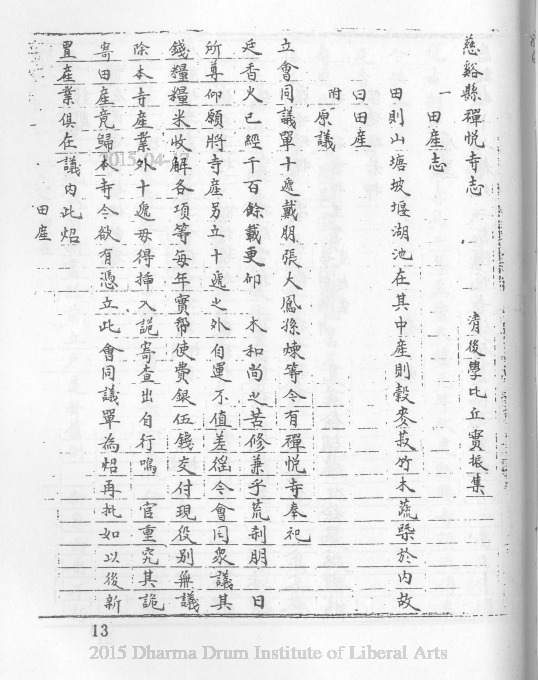 慈谿縣禪悅寺志 清後學比丘實振集
一 田產志
田則山塘坡堰湖池在其中產則穀麥菽竹木蔬槩於內故
曰田產
附 原議
立會同議單十遞戴朋張大鳳孫煉等今有禪悅寺奉祀
廷香火已經千百餘載更仰 木和尚之苦修兼乎荒剎朋 日
所尊仰願將寺產另立十遞之外自運不值差徭令會同衆議其
錢糧糧米收解各項等每年實帮使費銀伍錢交付現役別無議
除本寺產業外十遞毋得揷入詭寄查出自行鳴 官重究其詭
寄田產竟歸本寺今欲有憑立此會同議單為炤再批如以後新
置產業俱在議內此炤
田產
13
2015-04-
2015 Dharma Drum Institute of Liberal Arts